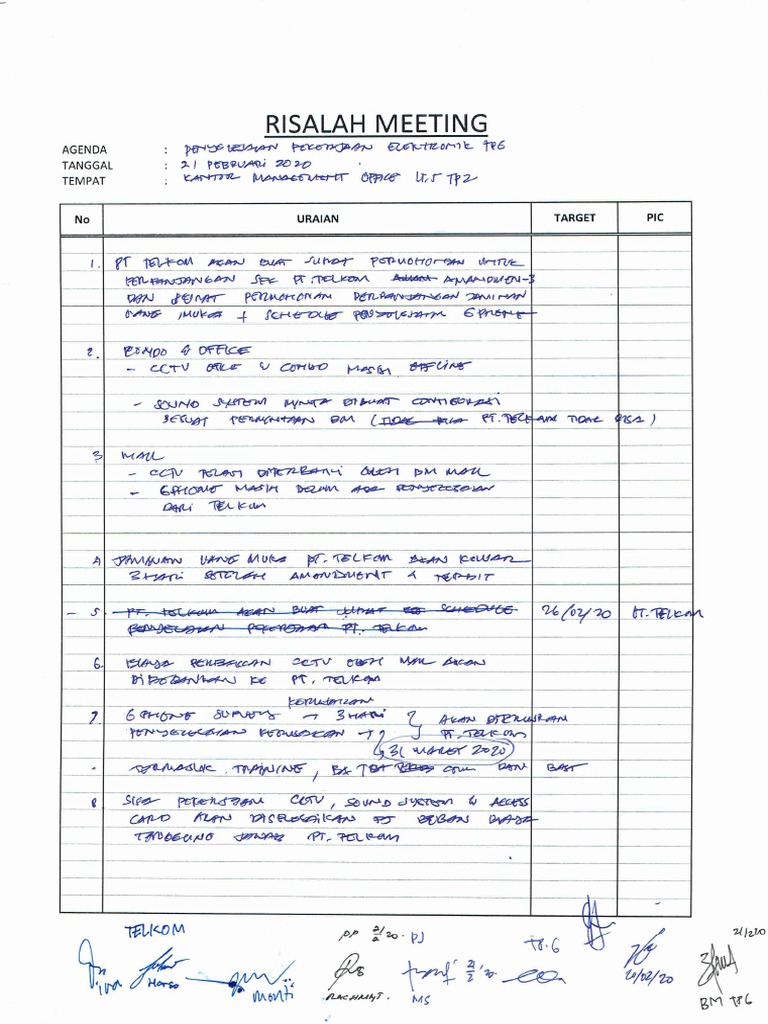 RISALAH MEETING
AGENDA : PENYELESAIAN PEKERJAAN ELEKTRONIK TP6
TANGGAL : 21 FEBRUARI 2020
TEMPAT : KANTOR MANAGEMENT OFFICE LT.5 TP2
No URAIAN TARGET PIC
1. PT TELKOM AKAN BUAT SURAT PERMOHONAN UNTUK
PERPANJANGAN SPK PT. TELKOM AMANDMEN-3
DAN SURAT PERMOHONAN PERPANJANGAN JAMINAN
UANG MUKA + SCHEDULE PENYELESAIAN GPHONE
2. CONDO & OFFICE
- CCTV OFFICE & CONDO MASIH OFFLINE
- SOUND SYSTEM MINTA DIBUAT CONFIGURASI
SESUAI PERMINTAAN BM ( PT. TELKOM TIDAK BISA )
3 MALL
- CCTV TELAH DIPERBAIKI OLEH BM MALL
- GPHONE MASIH BELUM ADA PENYELESAIAN
DARI TELKOM
4 JAMINAN UANG MUKA PT. TELKOM AKAN KELUAR
3 HARI SETELAH AMANDMENT 4 TERBIT
- 5. PT. TELKOM AKAN BUAT SURAT SCHEDULE 26/02/20 PT. TELKOM
PENYELESAIAN PEKERJAAN PT. TELKOM
6. BIAYA PERBAIKAN CCTV OLEH MALL AKAN
DIBEBANKAN KE PT. TELKOM
KERUSAKAN
7. GPHONE SURVEY → 3 HARI } AKAN DITERUSKAN
PENYELESAIAN KERUSAKAN → ? } PT. TELKOM
31 MARET 2020
- TERMASUK TRAINING, DAN BAST
8 SISA PEKERJAAN CCTV, SOUND SYSTEM & ACCESS
CARD AKAN DISELESAIKAN PJ BEBAN BIAYA
TANGGUNG JAWAB PT. TELKOM
TELKOM
PP 21/2 20. PJ
TP.6
21/2 20
Ivan Harso Monti
RACHMAT.
21/2 '20.
MS
20/02/20
BM TP6